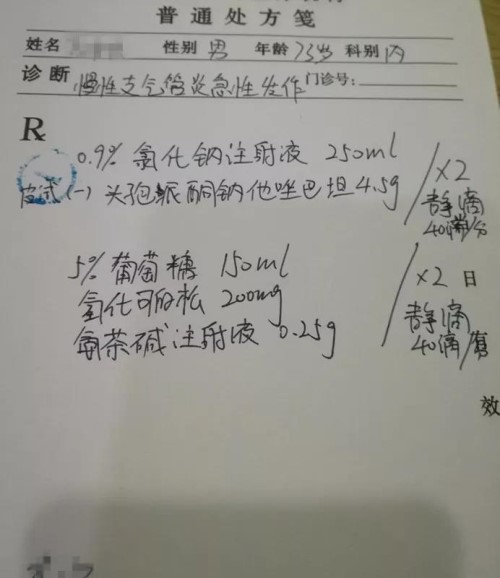 普通处方笺
姓名 性别 男 年龄 73岁 科别 内
诊断 慢性支气管炎急性发作 门诊号:
R
0.9% 氯化钠注射液 250ml
皮试(一) 头孢哌酮钠他唑巴坦 4.5g
/×2
静滴
40滴/分
5% 葡萄糖 150ml
氢化可的松 200mg
氨茶碱注射液 0.25g
/×2 日
静滴
40滴/
效